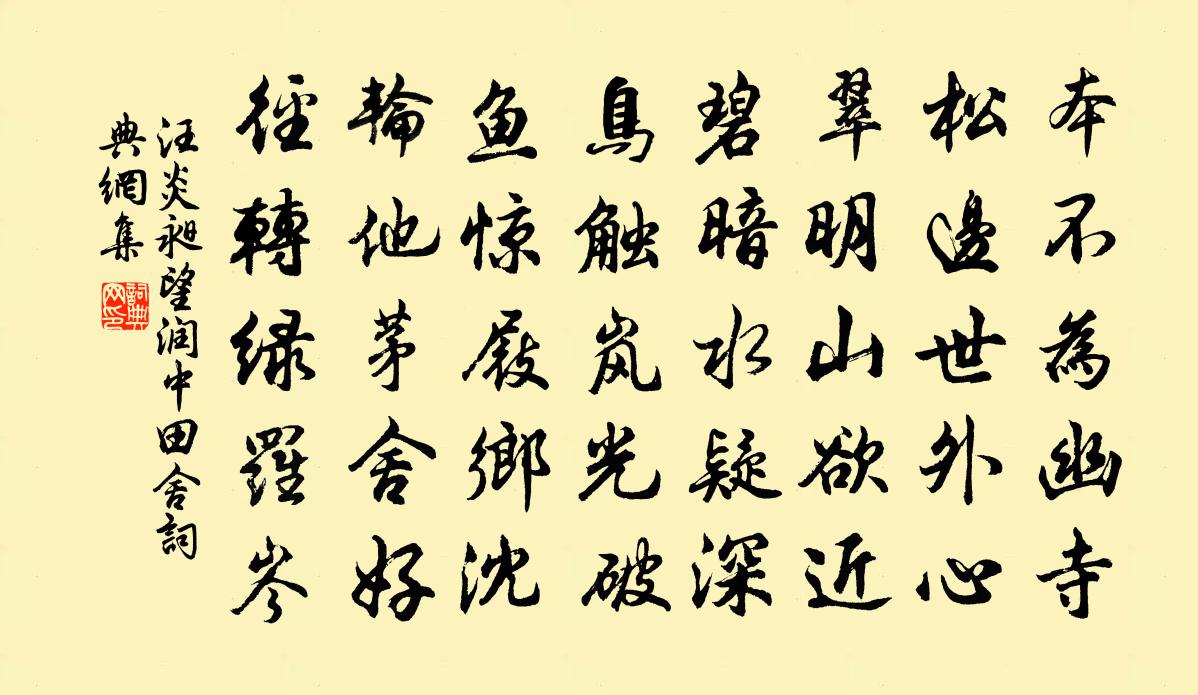 本不為幽寺
松邊世外心
翠明山欲近
碧暗水疑深
鳥触岚光破
鱼惊屐響沈
輪他茅舍好
徑轉绿羅岑
汪炎昶望润中田舍詞
典網集
詞典网印